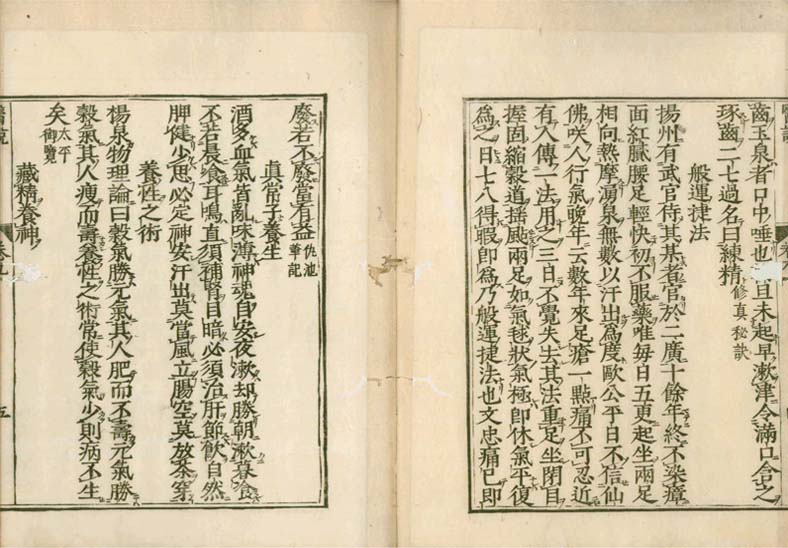 齒玉泉者口中唾也旦未起早漱津令滿口吞之
琢齒二七過名曰練精 修真秘訣
般運捷法
揚州有武官侍其某者官於二廣十餘年終不染瘴
面紅膩腰足輕快初不服藥唯每日五更起坐兩足
相向熱摩湧泉無數以汗出為度歐公平日不信仙
佛咲人行氣晚年云數年來足瘡一點痛不可忍近
有人傳一法用之三日不覺失去其法重足坐閉目
握固縮穀道搖颭兩足如氣毬狀氣極即休氣平復
為之日七八得暇即為乃般運捷法也文忠痛已即
廢若不廢當有益 仇池筆記
真常子養生
酒多血氣皆亂味薄神魂自安夜漱却勝朝漱暮飡
不若晨飡耳鳴直須補腎目暗必須治肝節飲自然
脾健少思必定神安汗出莫當風立腸空莫放茶穿
養性之術
楊泉物理論曰穀氣勝元氣其人肥而不壽元氣勝
穀氣其人瘦而壽養性之術常使穀氣少則病不生
矣 太平御覽
藏精養神
醫說 卷九 五